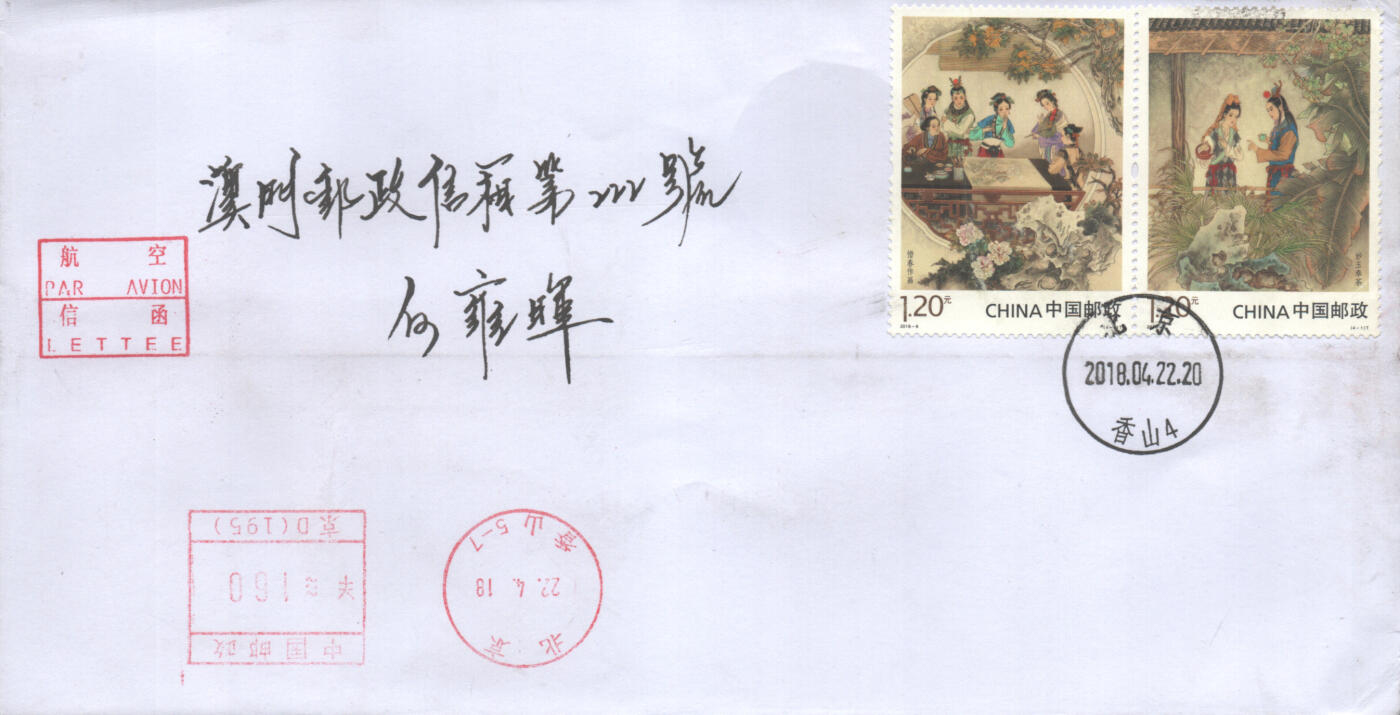 澳門郵政信箱第222號
何雍暉
航 空
PAR AVION
信 函
LETTEE
惜春作画
1.20元
CHINA 中国邮政
2018-8
妙玉奉茶
1.20元
CHINA 中国邮政
(4-1)T
北京
2018.04.22.20
香山4
京D(195)
¥≈160
中国邮政
香山5-7
22.4.18
北京